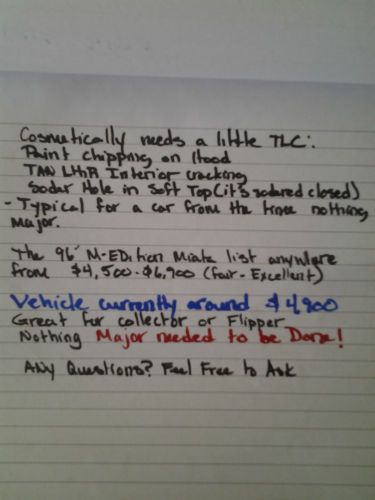 Cosmetically needs a little TLC:
Paint chipping on Hood
TAN LTHR Interior cracking
Sodar Hole in Soft Top (it's sodared closed)
- Typical for a car from the time nothing
Major.
The 96' M-Edition Miata list anywhere
from $4,500-$6,900 (fair-Excellent)
Vehicle currently around $4,900
Great for collector or Flipper
Nothing Major needed to be Done!
Any Questions? Feel Free to Ask